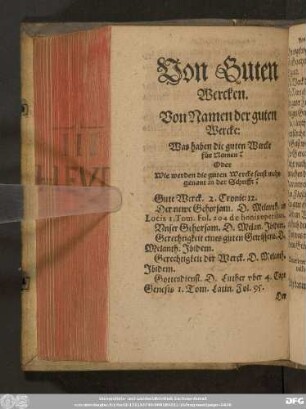 Von Guten
Wercken.
Von Namen der guten
Wercke:
Was haben die guten Wercke
für Namen?
Oder
Wie werden die guten Wercke sonst mehr
genant in der Schrifft?
Gute Werck. 2. Cronic: 12.
Der newe Gehorsam. D. Melanth. in
Locis 1. Tom. Fol. 204 de bonis operibus.
Unser Gehorsam. D. Melan. Ibidem.
Gerechtigkeit eines guten Gewissens. D.
Melanth. Ibidem.
Gerechtigkeit der Werck. D. Melanth.
Ibidem.
Gottesdienst. D. Luther vber 4. Cap.
Genesis 1. Tom. Latin. Fol. 95.